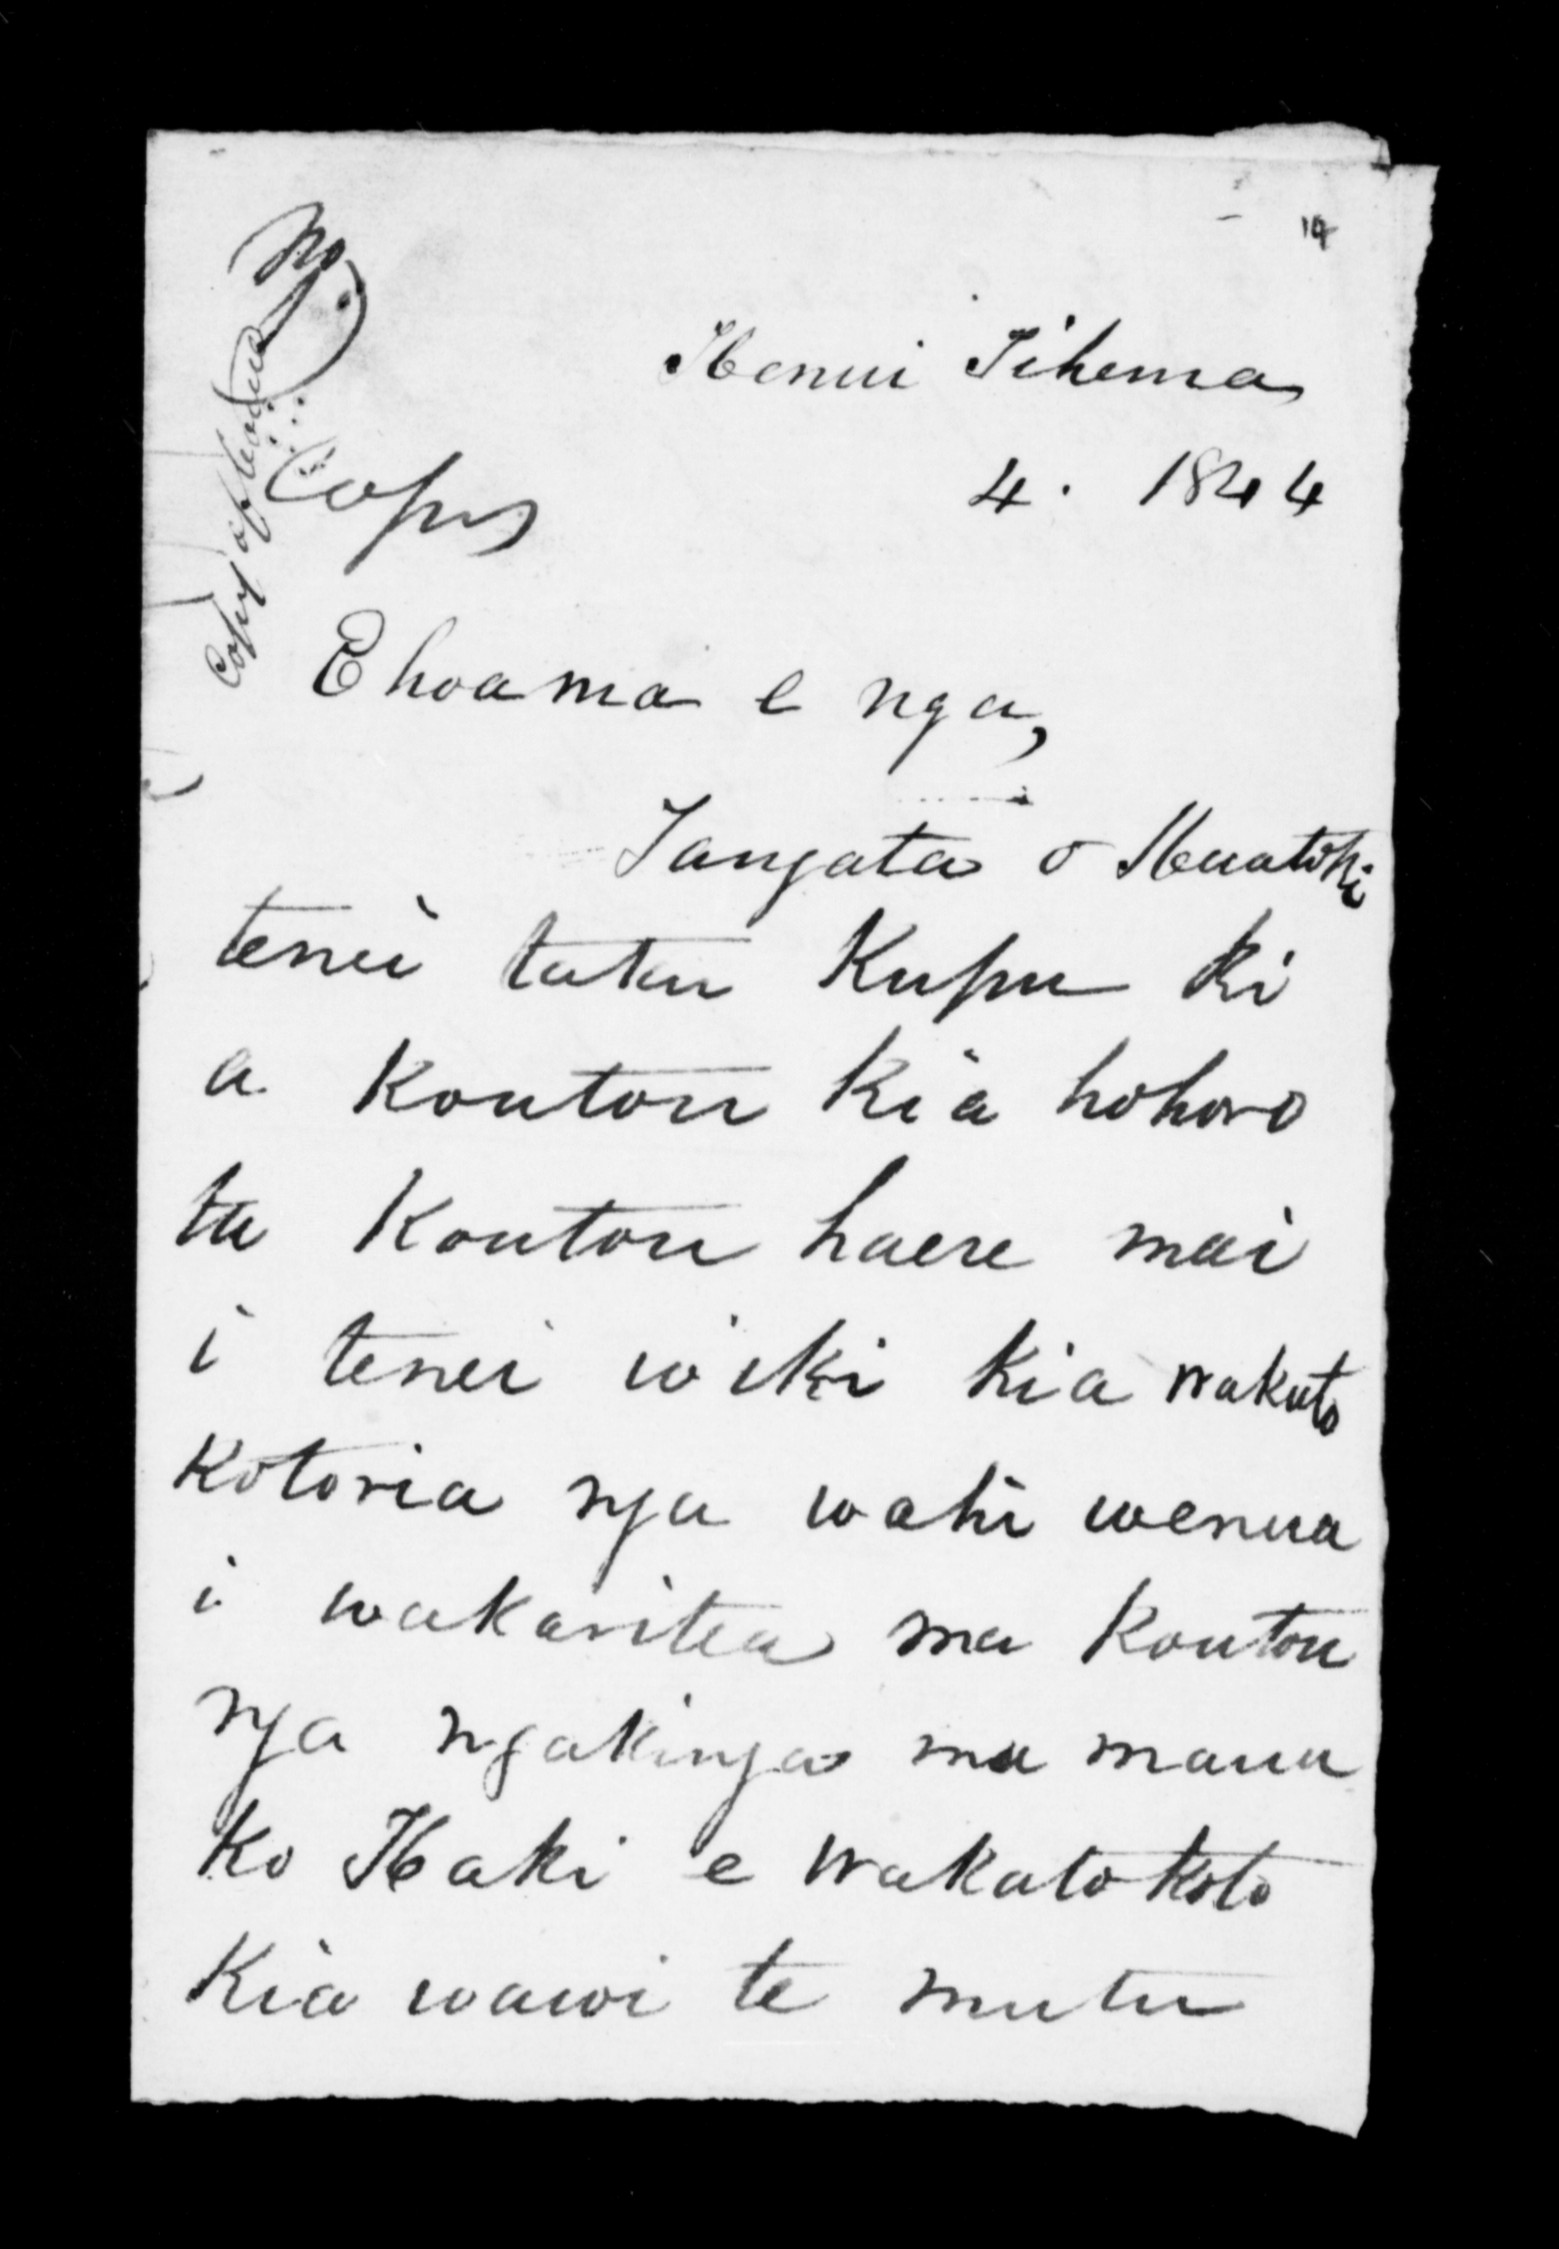 No.
14
Henui Tihema
4. 1844
Copy
Copy of
Ehoama e nga,
Tangata o Huatoki
tenei taku Kupu ki
a Koutou Kia hohoro
ta Koutou haere mai
i tenei wiki Kia wakato
Kotoria nga wahi wenua
i wakaritea ma Koutou
nga ngakinga ma mana
ko Haki e wakatokoto
Kia wawi te mutu